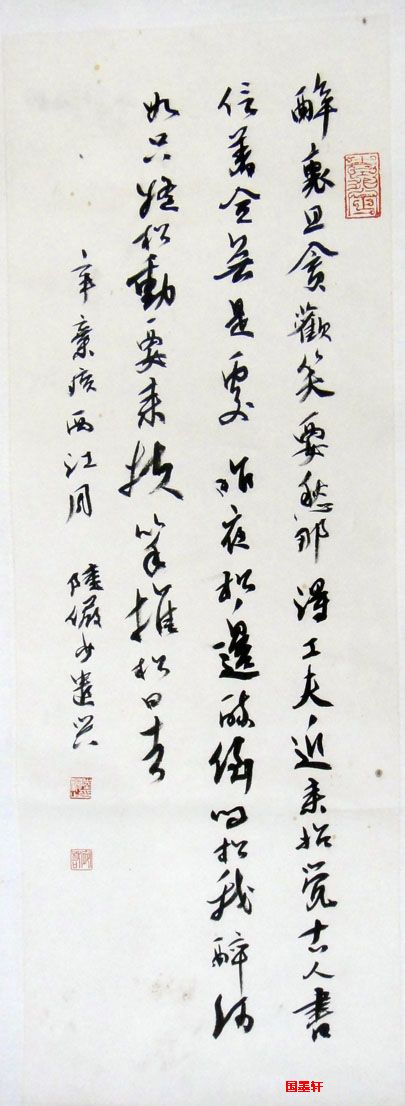 醉裏且貪歡笑要愁那得工夫近来始覺古人書
信著全無是處昨夜松邊醉倒問松我醉何
如只疑松動要来扶以手推松曰去
辛棄疾西江月 陸儼少遣興
国墨轩